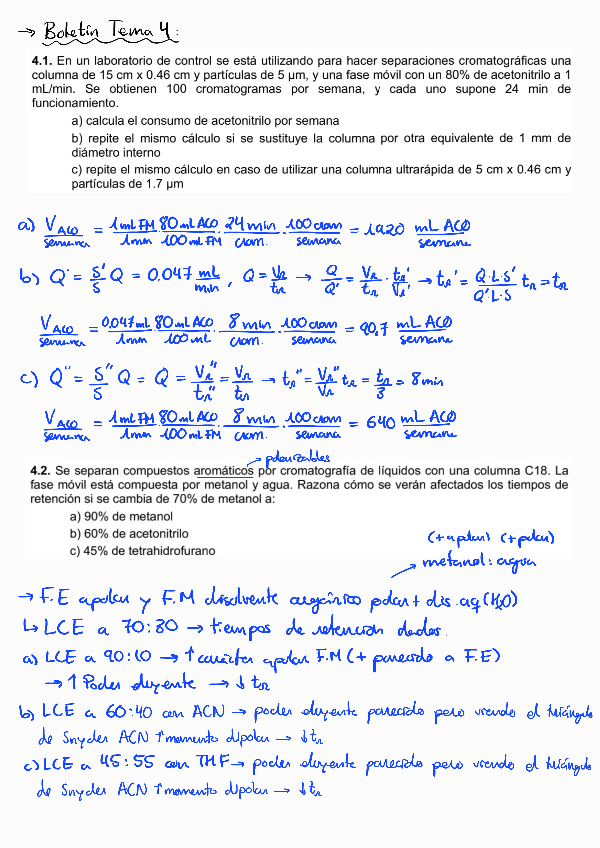 → Boletín Tema 4:
4.1. En un laboratorio de control se está utilizando para hacer separaciones cromatográficas una
columna de 15 cm x 0.46 cm y partículas de 5 µm, y una fase móvil con un 80% de acetonitrilo a 1
mL/min. Se obtienen 100 cromatogramas por semana, y cada uno supone 24 min de
funcionamiento.
a) calcula el consumo de acetonitrilo por semana
b) repite el mismo cálculo si se sustituye la columna por otra equivalente de 1 mm de
diámetro interno
c) repite el mismo cálculo en caso de utilizar una columna ultrarápida de 5 cm x 0.46 cm y
partículas de 1.7 µm
a) V ACN/semana = 1 mL FM/1 min · 80 mL ACN/100 mL FM · 24 min/crom. · 100 crom/semana = 1920 mL ACN/semana
b) Q' = S'/S Q = 0,047 mL/min, Q = VR/tR → Q/Q' = VR/tR · tR'/VR' → tR' = Q·L·S'/Q'·L·S tR = tR
V ACN/semana = 0,047 mL/1 min · 80 mL ACN/100 mL · 8 min/crom. · 100 crom/semana = 90,7 mL ACN/semana
c) Q'' = S''/S Q = Q = VR''/tR'' = VR/tR → tR'' = VR''/VR tR = tR/3 = 8 min
V ACN/semana = 1 mL FM/1 min · 80 mL ACN/100 mL FM · 8 min/crom. · 100 crom/semana = 640 mL ACN/semana
→ polarizables
4.2. Se separan compuestos aromáticos por cromatografía de líquidos con una columna C18. La
fase móvil está compuesta por metanol y agua. Razona cómo se verán afectados los tiempos de
retención si se cambia de 70% de metanol a:
a) 90% de metanol
b) 60% de acetonitrilo
c) 45% de tetrahidrofurano
(+apolar) (+polar)
→ metanol: agua
→ F.E apolar y F.M disolvente orgánico polar + dis. aq (H2O)
↳ LCE a 70:30 → tiempos de retención dados.
a) LCE a 90:10 → ↑ carácter apolar F.M (+ parecido a F.E)
→ ↑ Poder eluyente → ↓ tR
b) LCE a 60:40 con ACN → poder eluyente parecido pero viendo el triángulo
de Snyder ACN ↑ momento dipolar → ↓ tR
c) LCE a 45:55 con THF → poder eluyente parecido pero viendo el triángulo
de Snyder ACN ↑ momento dipolar → ↓ tR